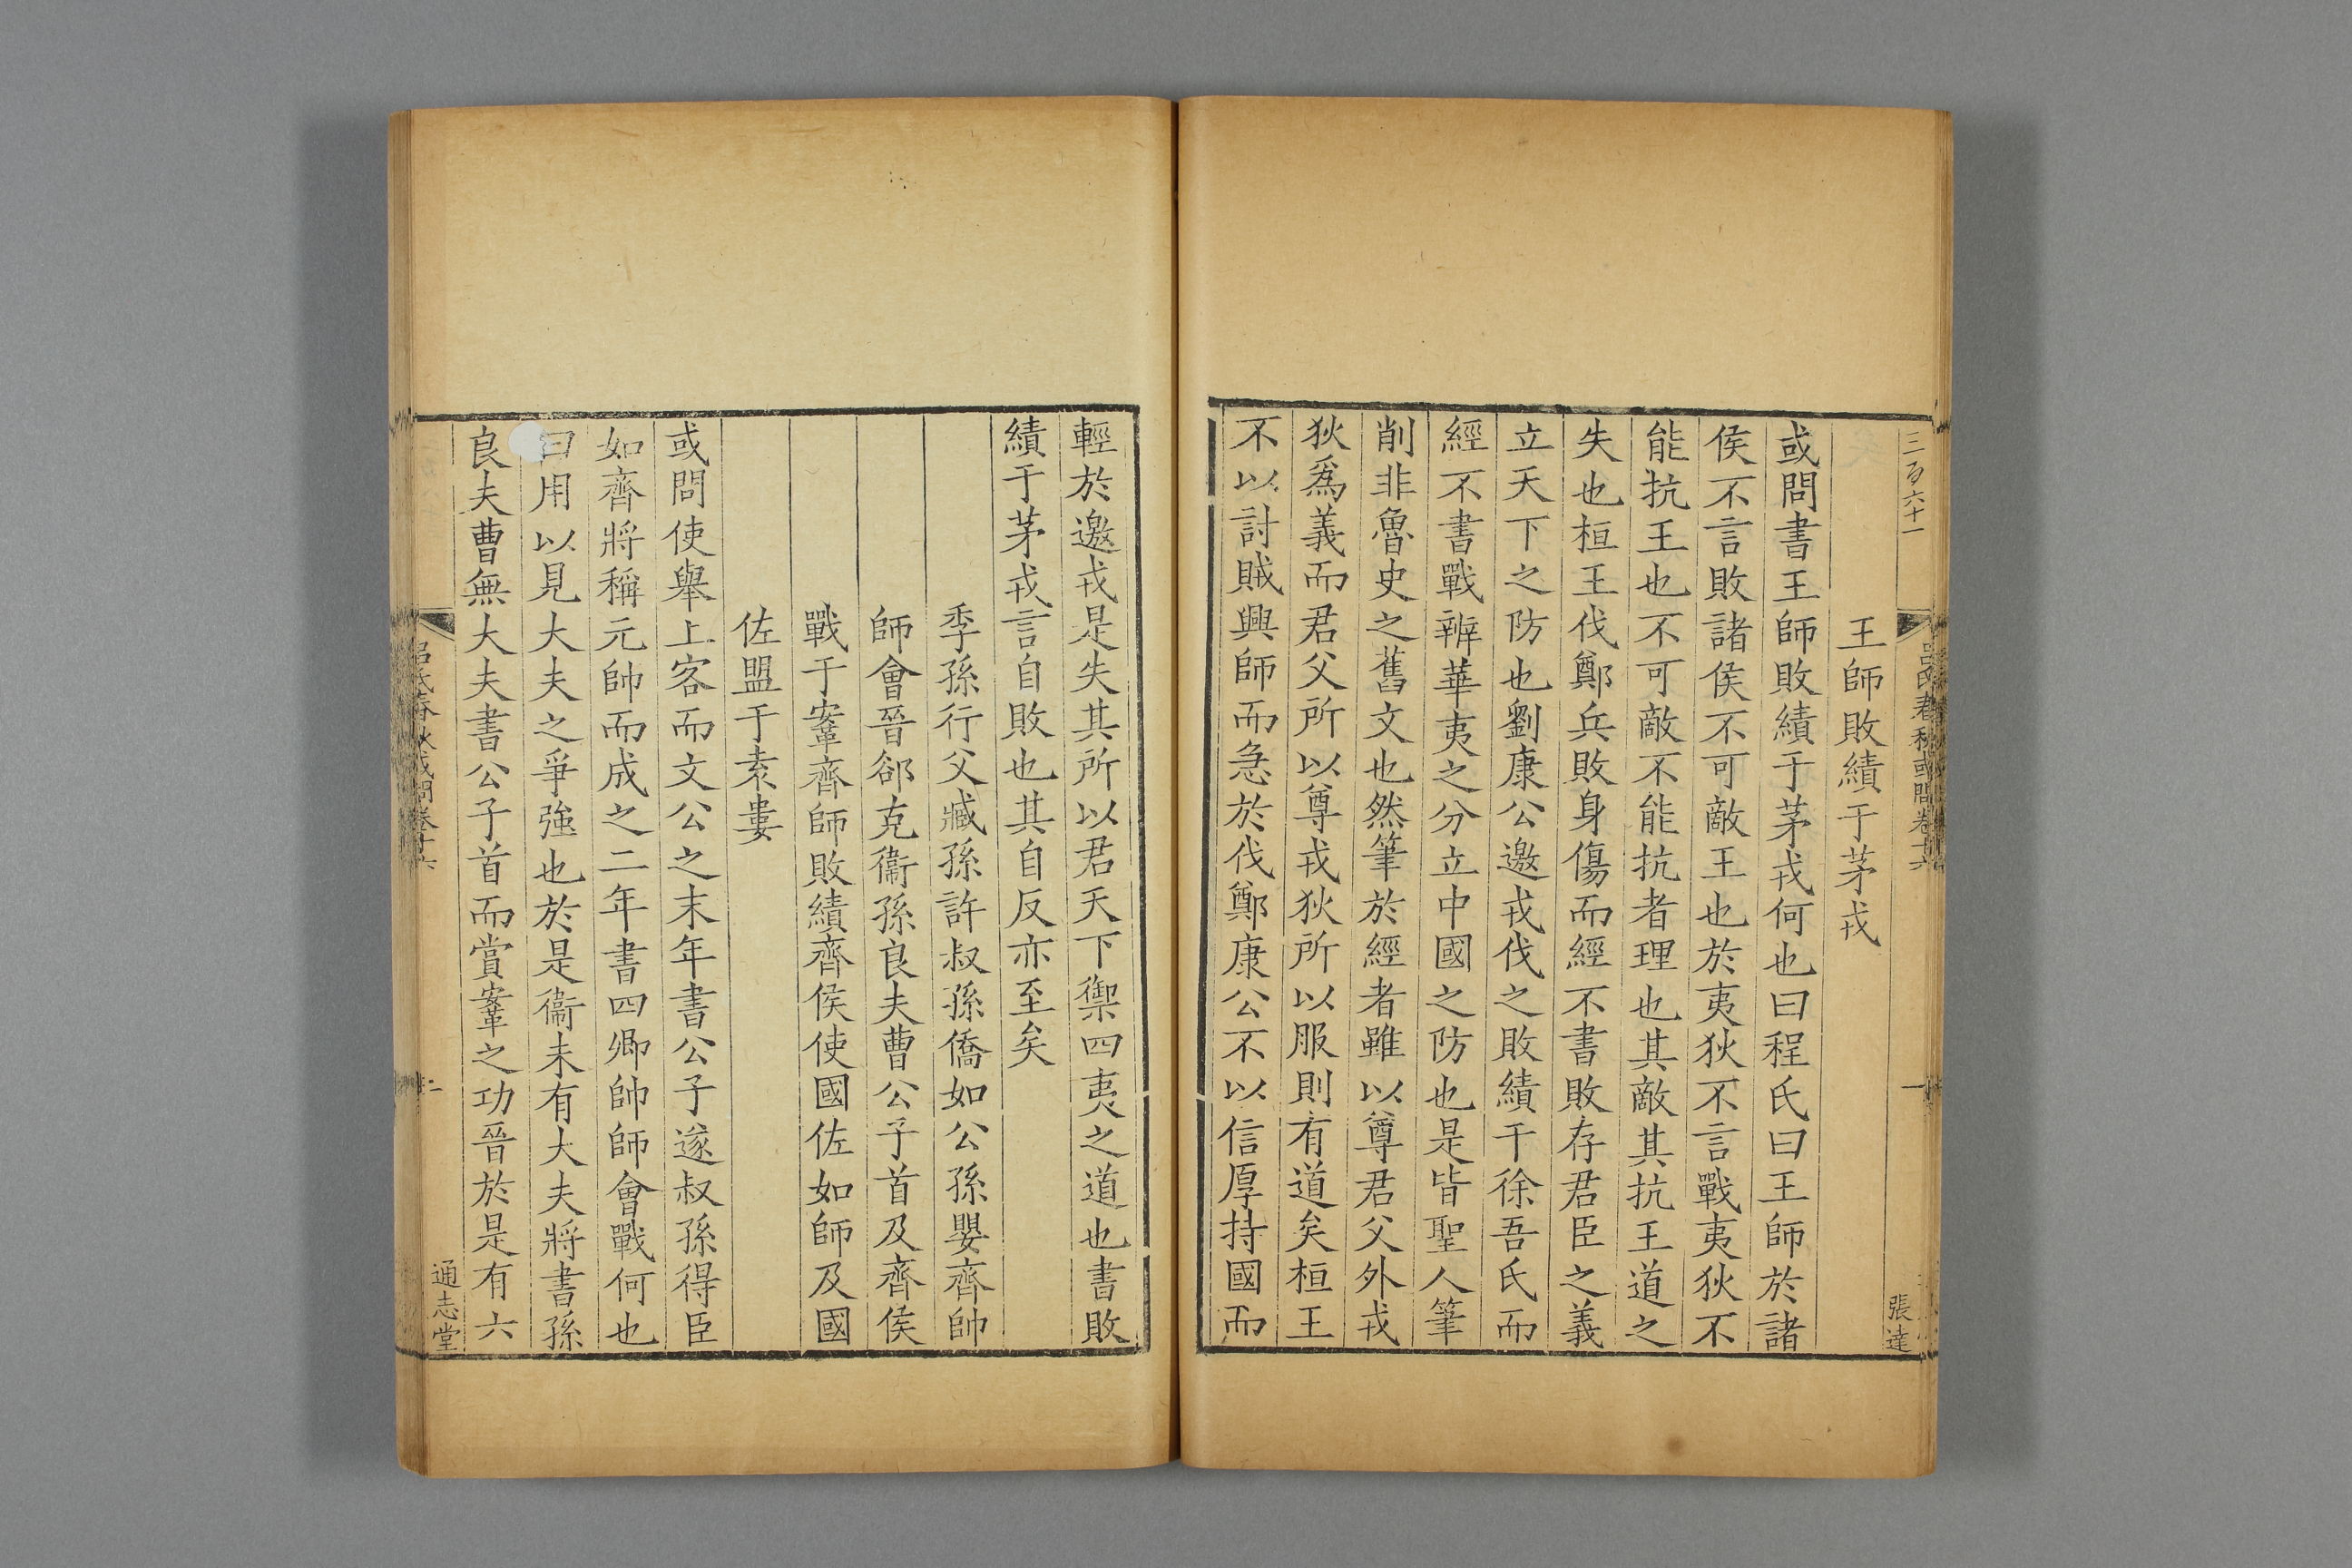 三百六十一
呂氏春秋或問卷十六
一
張達
王師敗績于茅戎
或問書王師敗績于茅戎何也曰程氏曰王師於諸
侯不言敗諸侯不可敵王也於夷狄不言戰夷狄不
能抗王也不可敵不能抗者理也其敵其抗王道之
失也桓王伐鄭兵敗身傷而經不書敗存君臣之義
立天下之防也劉康公邀戎伐之敗績于徐吾氏而
經不書戰辨華夷之分立中國之防也是皆聖人筆
削非魯史之舊文也然筆於經者雖以尊君父外戎
狄爲義而君父所以尊戎狄所以服則有道矣桓王
不以討賊興師而急於伐鄭康公不以信厚持國而
輕於邀戎是失其所以君天下禦四夷之道也書敗
績于茅戎言自敗也其自反亦至矣
季孫行父臧孫許叔孫僑如公孫嬰齊帥
師會晉郤克衞孫良夫曹公子首及齊侯
戰于鞌齊師敗績齊侯使國佐如師及國
佐盟于袁婁
或問使舉上客而文公之末年書公子遂叔孫得臣
如齊將稱元帥而成之二年書四卿帥師會戰何也
曰用以見大夫之爭強也於是衞未有大夫將書孫
良夫曹無大夫書公子首而賞鞌之功晉於是有六
呂氏春秋或問卷十六
二
通志堂